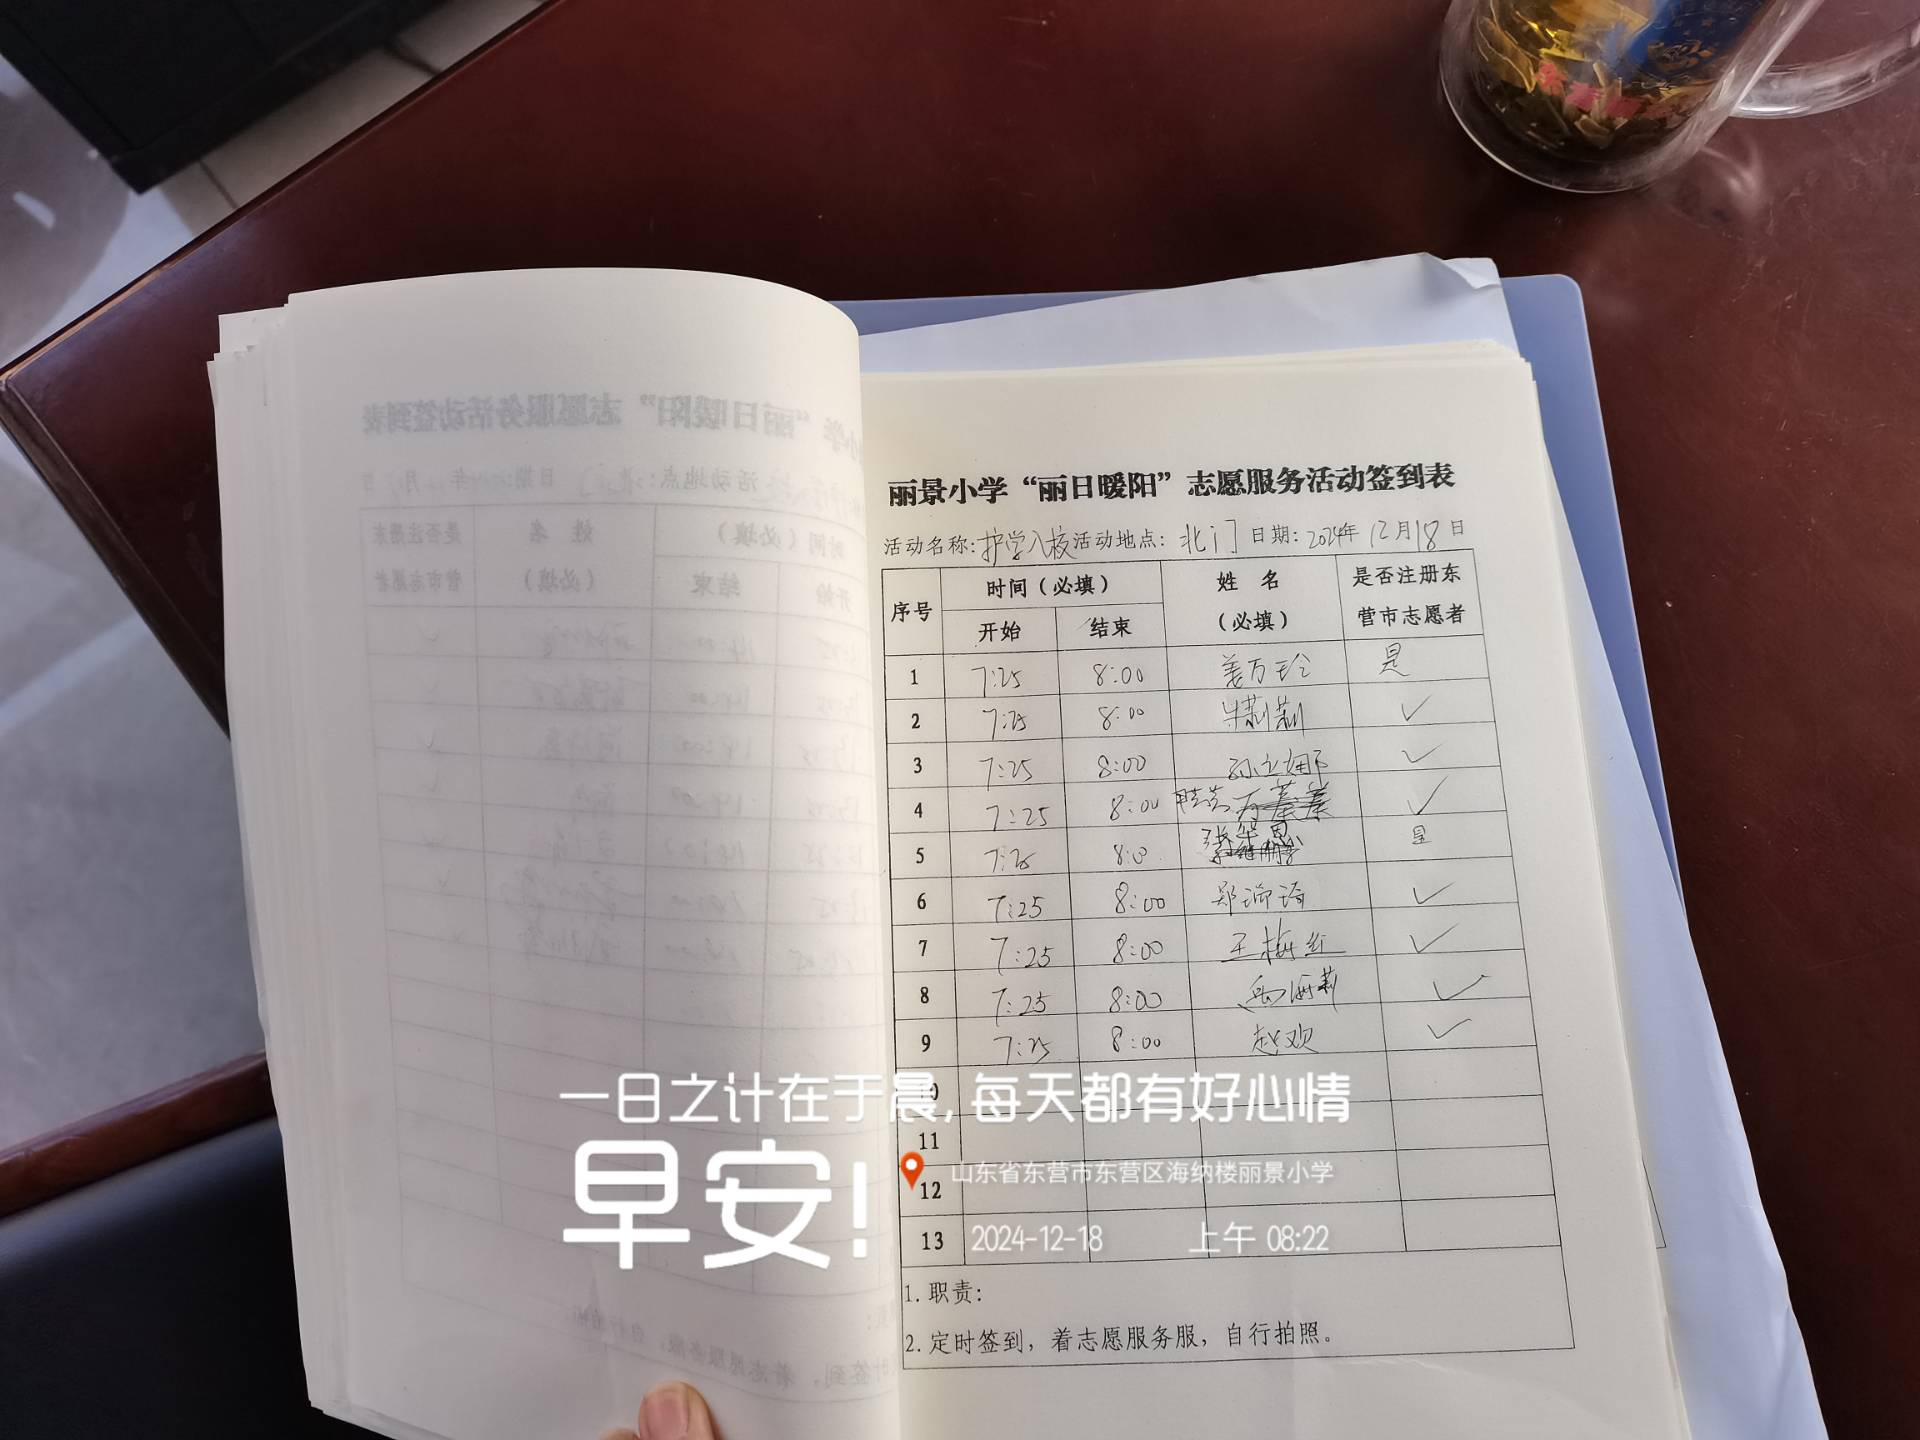 丽景小学“丽日暖阳”志愿服务活动签到表
活动名称:护学入校 活动地点: 北门 日期: 2024年 12月18日
序号 时间(必填) 姓 名 (必填) 是否注册东营市志愿者
开始 结束
1 7:25 8:00 姜万玲 是
2 7:25 8:00 朱莉莉 ✓
3 7:25 8:00 孙立娜 ✓
4 7:25 8:00 ✓
5 7:25 8:0 是
6 7:25 8:00 郑瑞琦 ✓
7 7:25 8:00 王梅红 ✓
8 7:25 8:00 ✓
9 7:25 8:00 赵欢 ✓
10
11
12
13
1. 职责:
2. 定时签到，着志愿服务服，自行拍照。
一日之计在于晨, 每天都有好心情
早安!
山东省东营市东营区海纳楼丽景小学
2024-12-18 上午 08:22